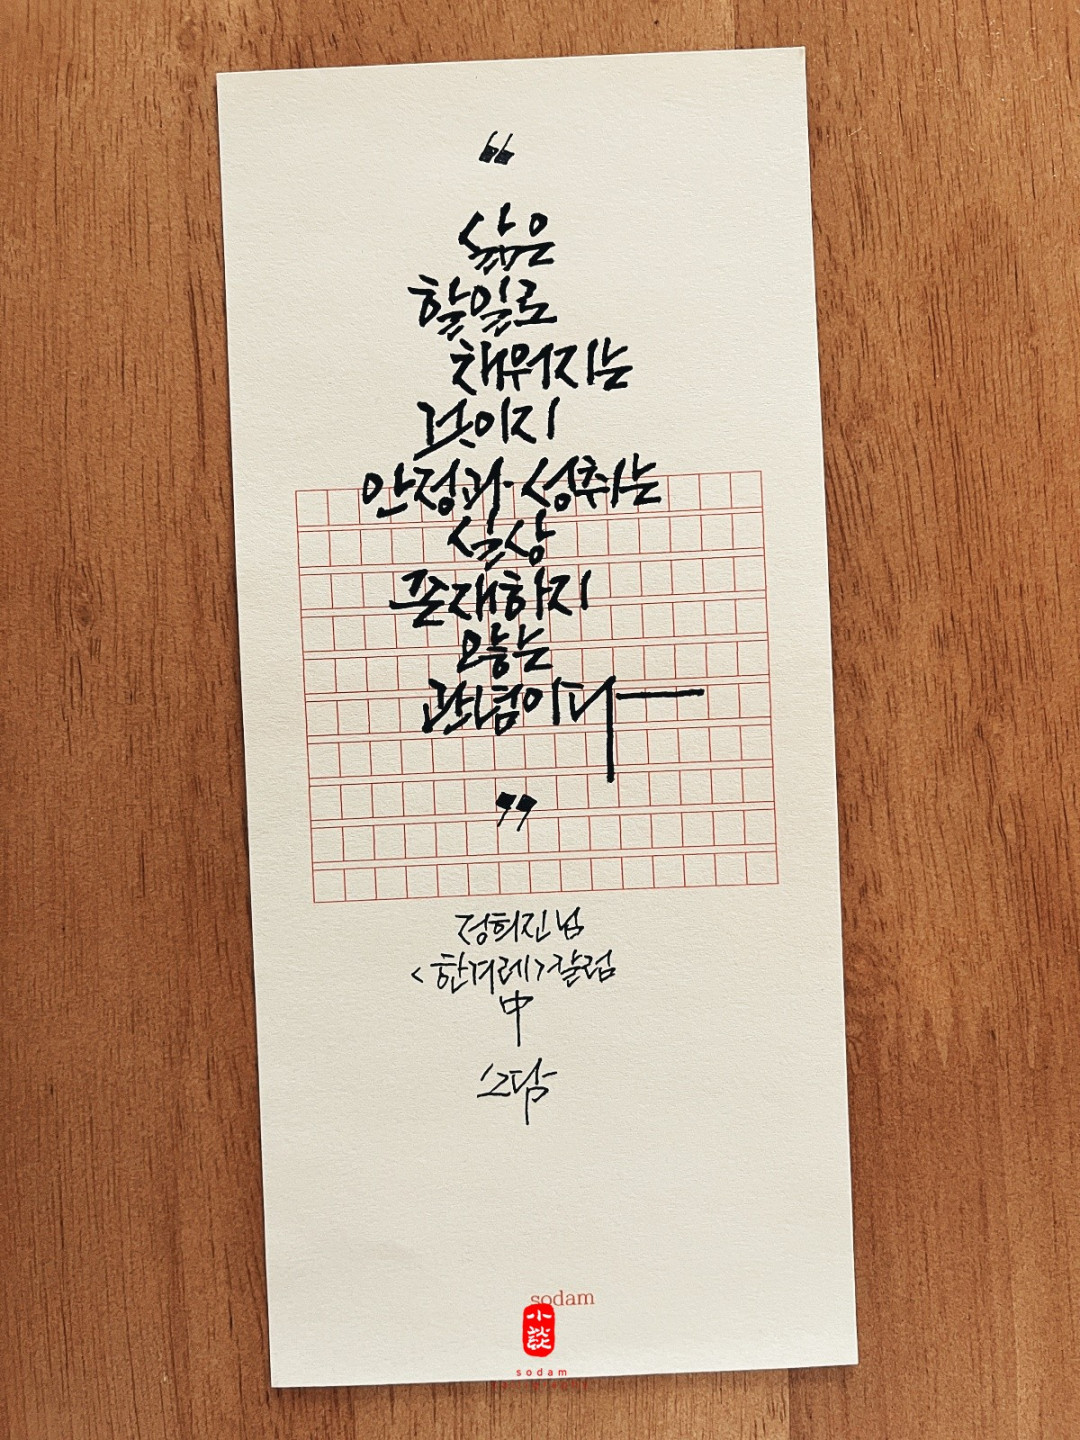 “
삶은
할일로
채워지는
것이지
안정과 성취는
실상
존재하지
않는
관념이다
”
정희진님
<한겨레>칼럼
中
소담
sodam
小談
sodam